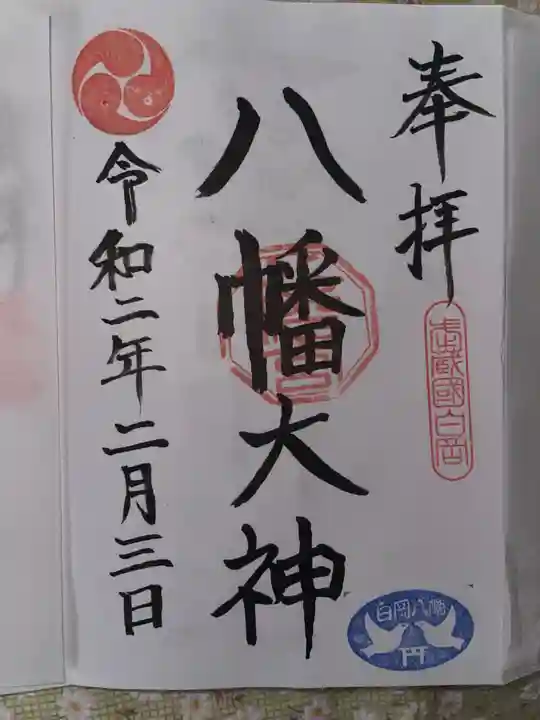 奉拝
武蔵國白岡
八幡大神
白岡八幡
令和二年二月三日